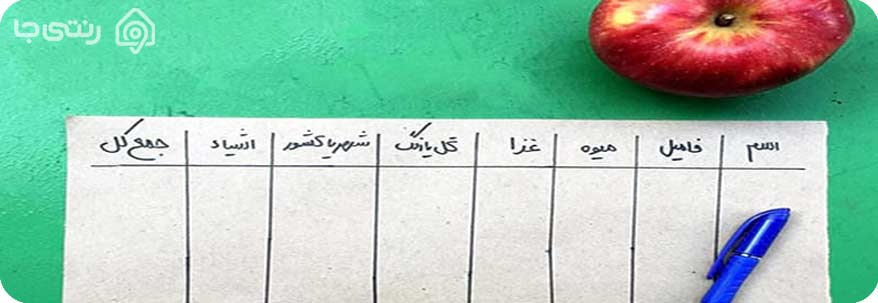 رنتی‌جا
اسم فامیل میوه غذا گل یا رنگ شهر یا کشور اشیاء جمع کل